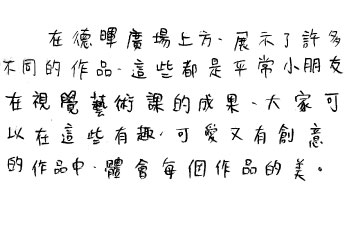 在德暉廣場上方、展示了許多
不同的作品、這些都是平常小朋友
在視覺藝術課的成果、大家可
以在這些有趣、可愛又有創意
的作品中、體會每個作品的美。